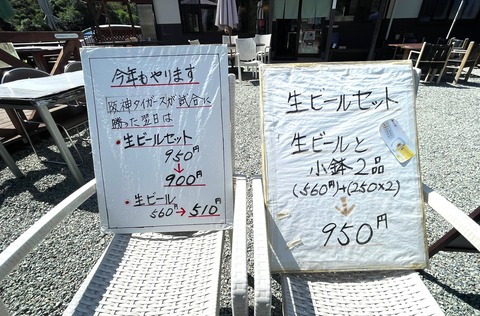 今年もやります
阪神タイガースが試合に
勝った翌日は
・生ビールセット
950円
↓
900円
・生ビール
560円→510円
生ビールセット
生ビールと
小鉢2品
(560円)+(250×2)
↓
950円